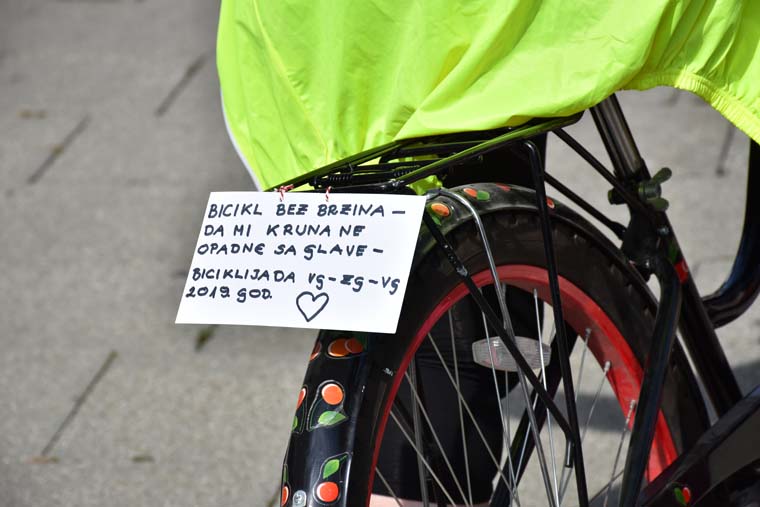 BICIKL BEZ BRZINA –
DA MI KRUNA NE
OPADNE SA GLAVE –
BICIKLIJADA VG-ZG-VG
2019 GOD.